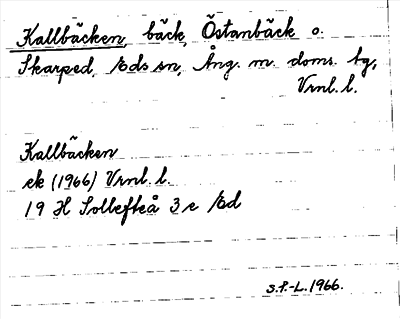 Kallbäcken, bäck, Östanbäck o.
Skarped, Eds sn, Ång. m. doms. bg,
Vrnl. l.
Kallbäcken
ek (1966) Vrnl. l.
19 H Sollefteå 3 e Ed
S.P.-L. 1966.